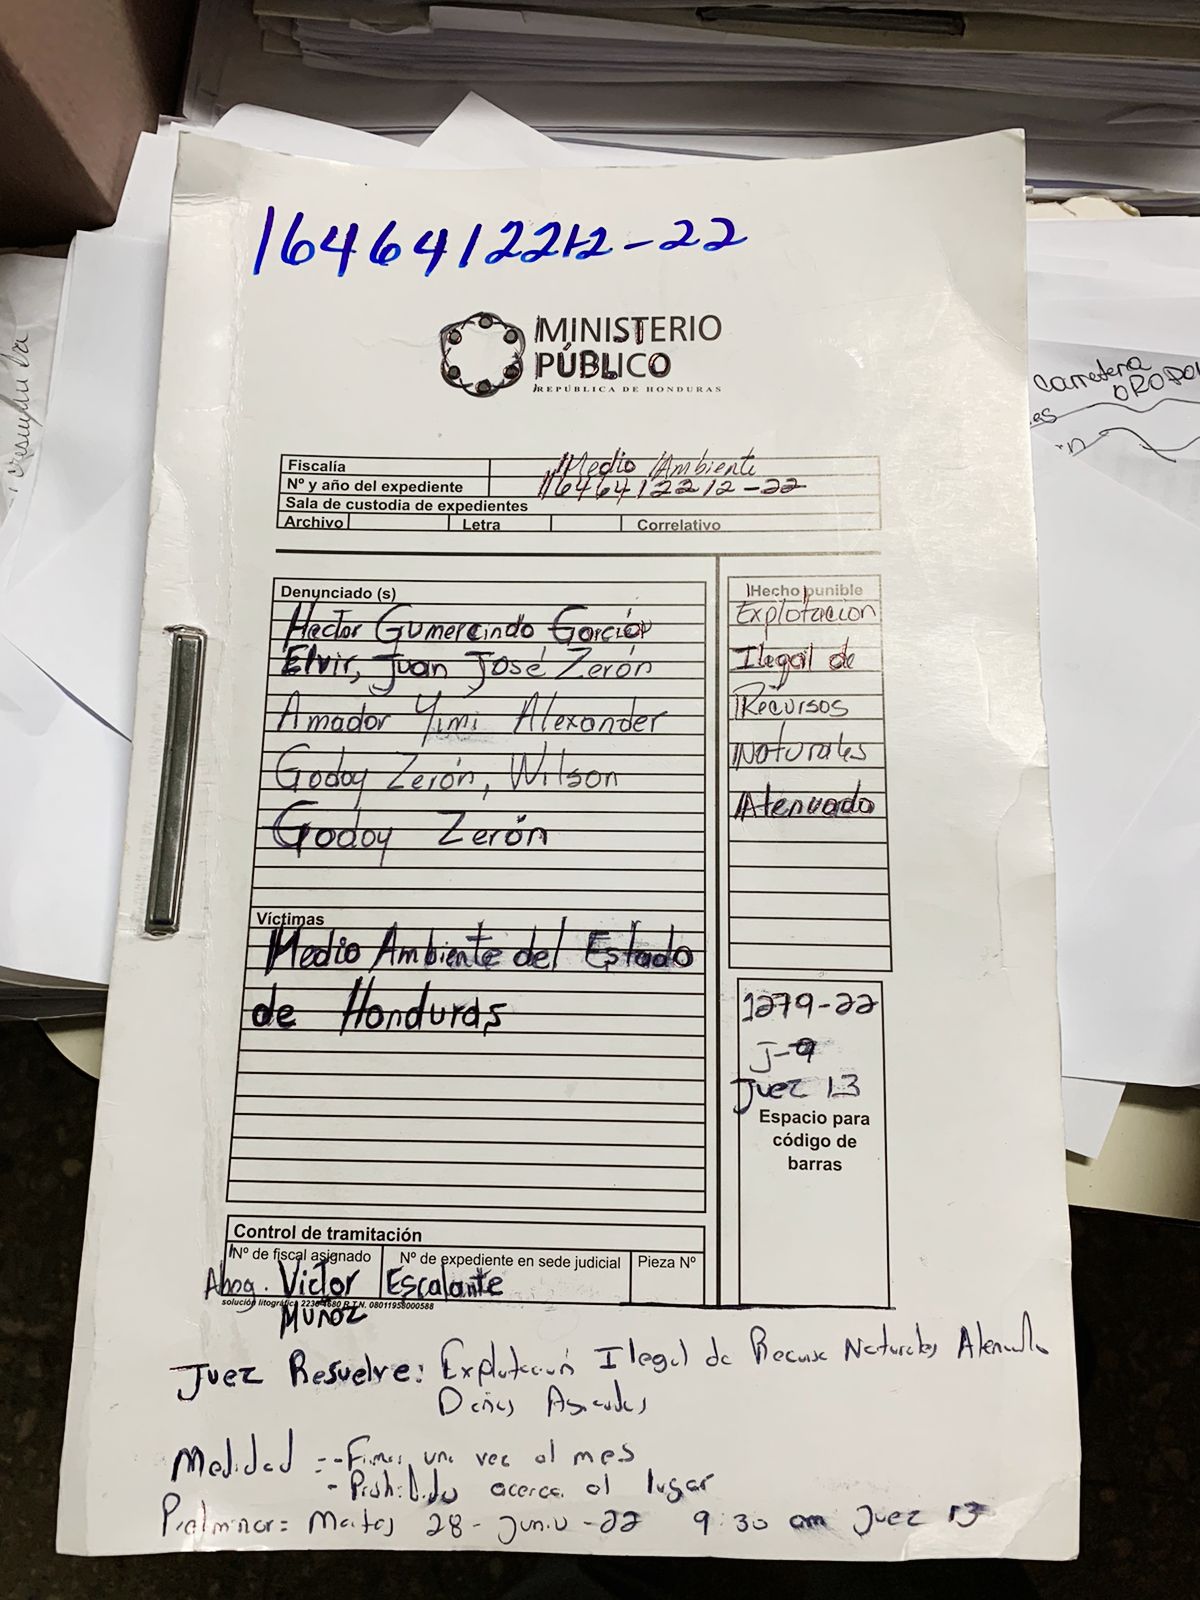 1646412212-22
MINISTERIO
PÚBLICO
REPÚBLICA DE HONDURAS
carretera
OROPOL
Fiscalía Medio Ambiente
Nº y año del expediente 1646412212-22
Sala de custodia de expedientes
Archivo Letra Correlativo
Denunciado (s)
Hector Gumercindo Garcia
Elvir, Juan José Zerón
Amador Yimi Alexander
Godoy Zerón, Wilson
Godoy Zerón
Hecho punible
Explotacion
Ilegal de
Recursos
Naturales
Atenuado
Víctimas
Medio Ambiente del Estado
de Honduras
1279-22
J-9
Juez 13
Espacio para
código de
barras
Control de tramitación
Nº de fiscal asignado Nº de expediente en sede judicial Pieza Nº
Abog. Victor Escalante
solución litográfica R.T.N. 08011958000588
MUÑOZ
Juez Resuelve: Explotación Ilegal de Recurs Naturales
Daños
Medidad :- Firmar una vez al mes
- acerca al lugar
28-Junio-22 9:30 am Juez 13